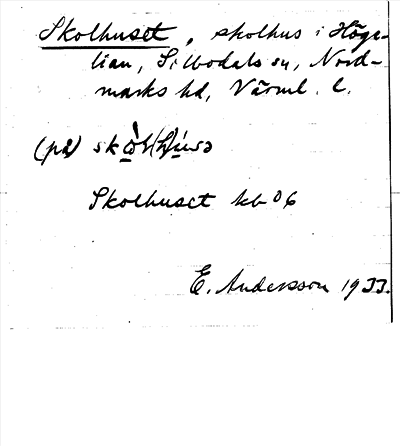 Skolhuset, skolhus i Högs-
lian, Silbodals sn, Nord-
marks hd, Värml. l.
(på)
Skolhuset kb 06
E. Andersson 1933.